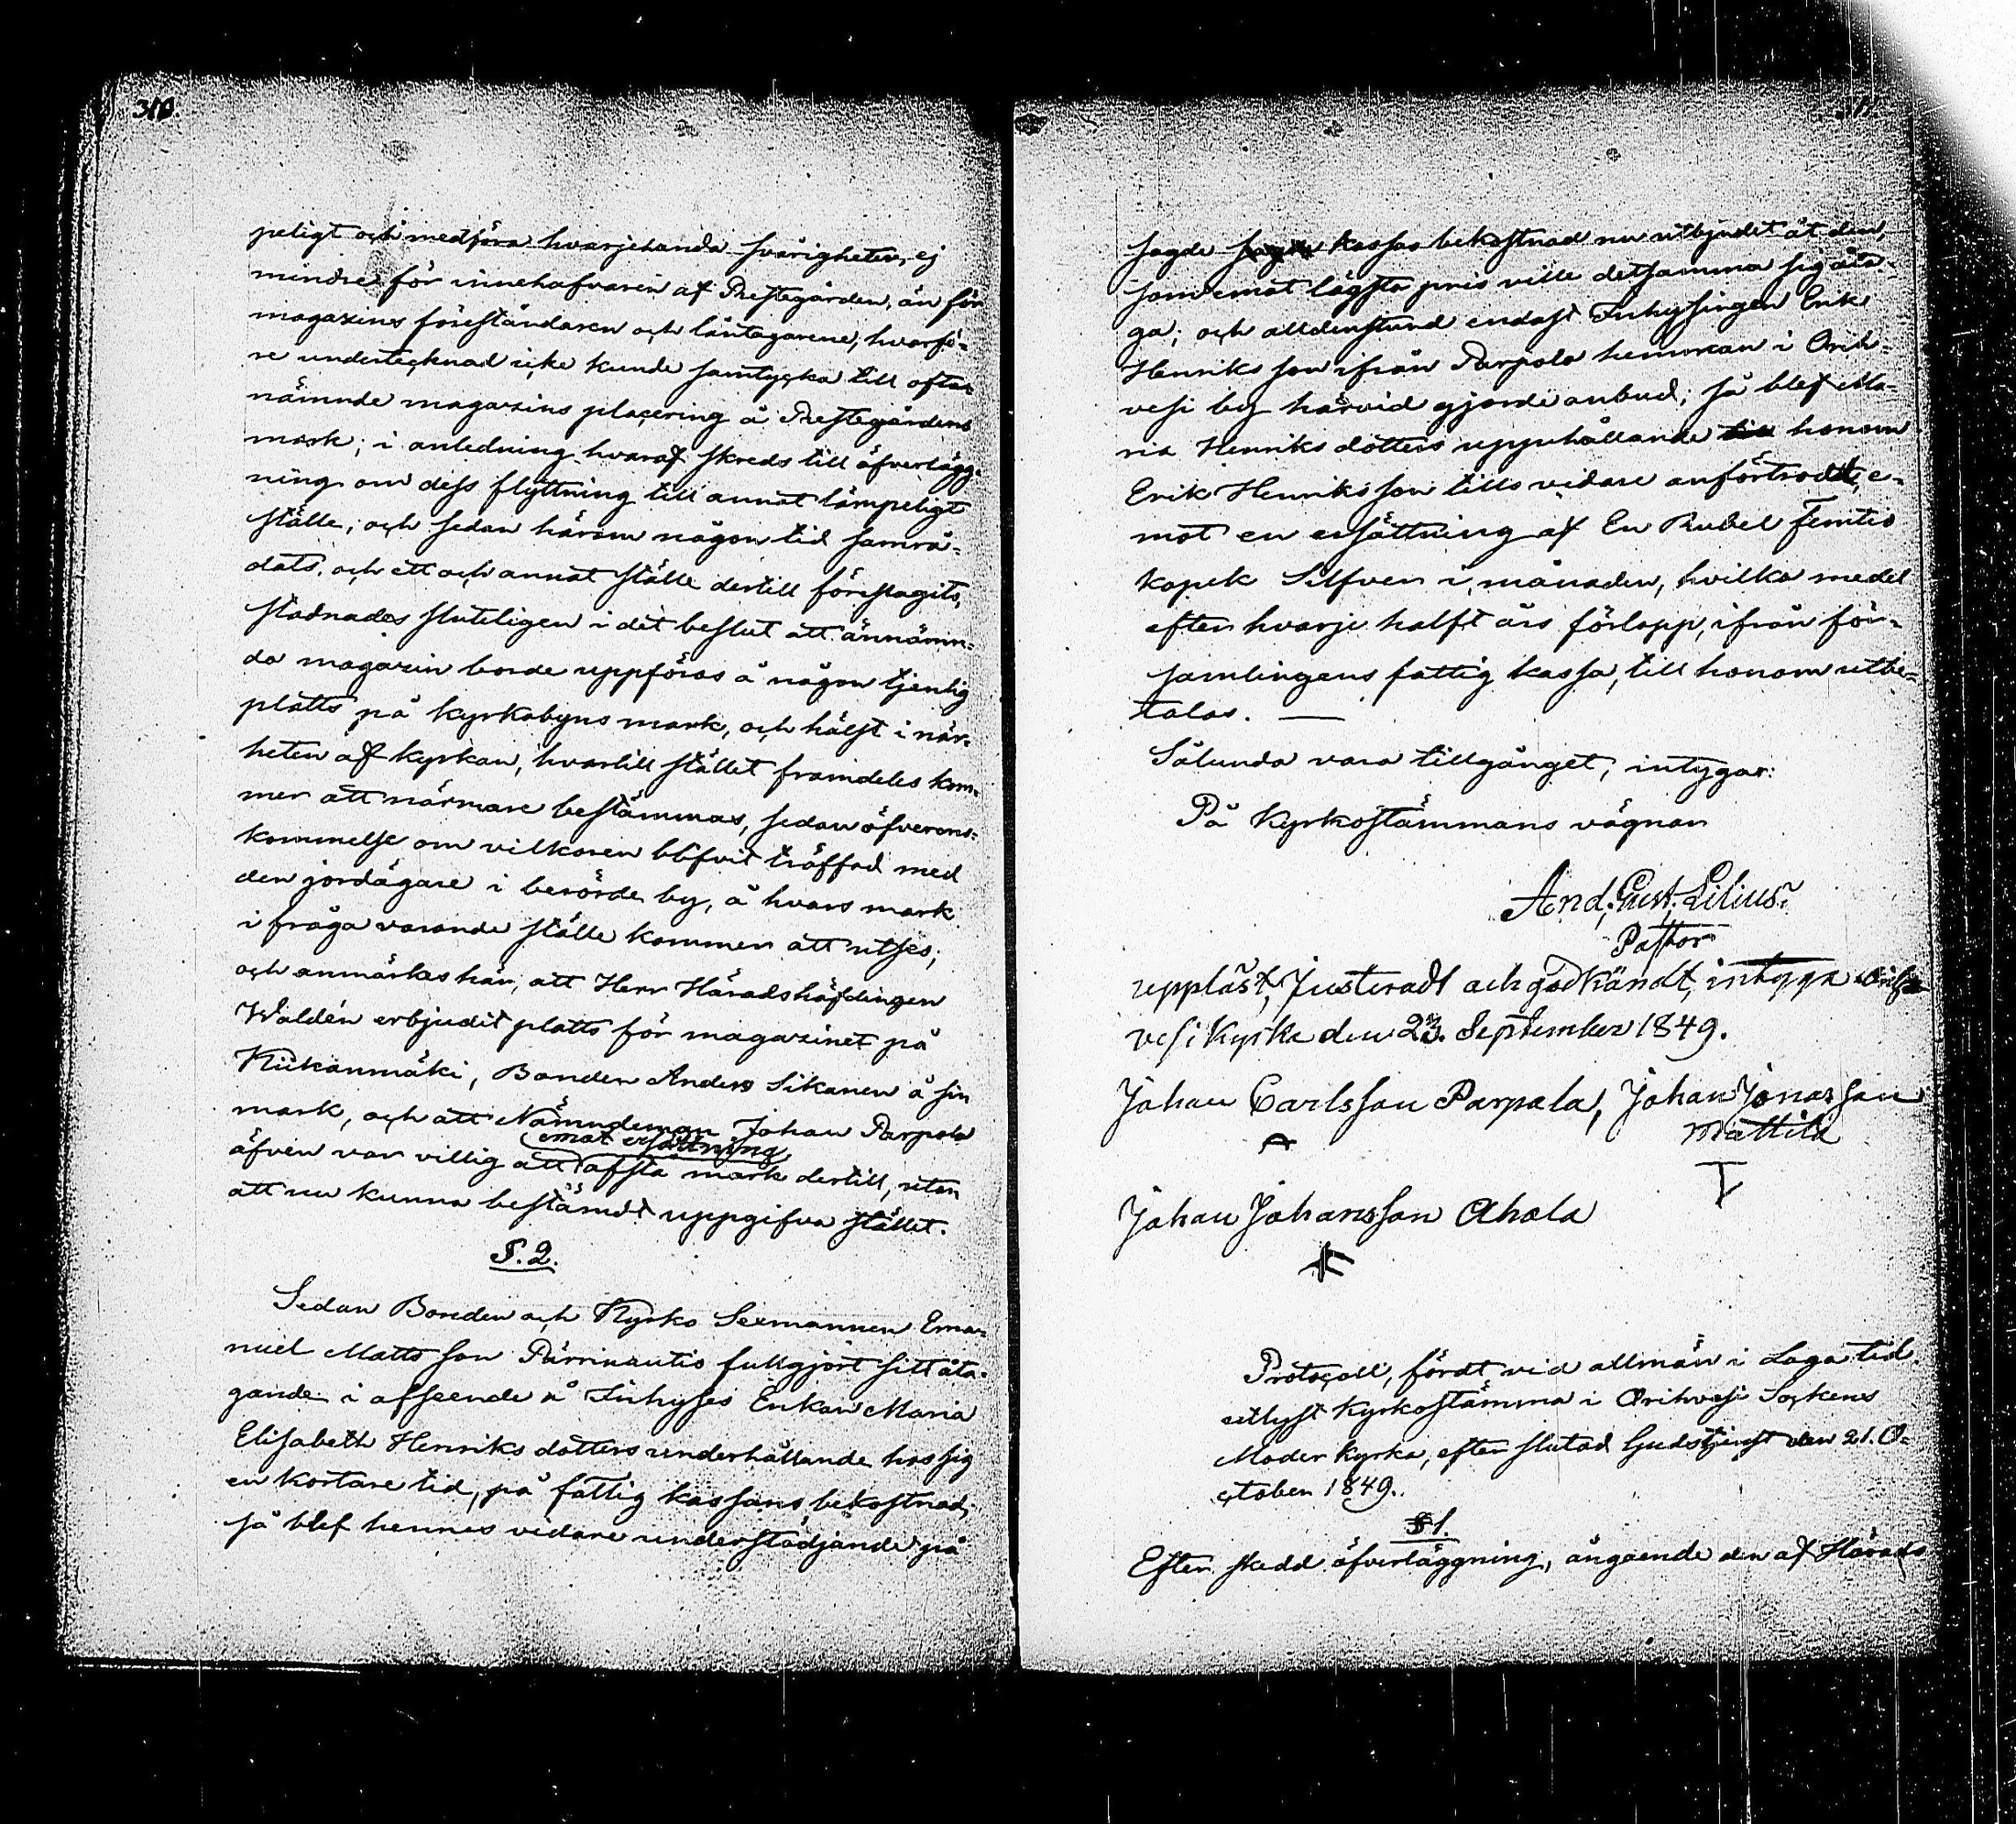 310.
peligt och medföra hvarjehanda svårigheter, ej
mindre för innehafvaren af Prestegården, än för
magazins föreståndaren och låntagarene, hvarfö-
re undertecknad icke kunde samtycka till ofta-
nämnde magazins placering å Prestegårdens
mark; i anledning hvaraf skreds till öfverlägg-
ning om dess flyttning till annat lämpeligt
ställe; och sedan härom någon tid samrå-
dats, och ett och annat ställe dertill föreslagits,
stadnades sluteligen i det beslut att ännämn-
da magazin borde uppföras å någon tjenlig
platts på kyrkobyns mark, och hälst i när-
heten af kyrkan, hvartill stället framdeles kom-
mer att närmare bestämmas, sedan öfverens-
kommelse om vilkoren blifvit träffad med
den jordägare i berörde by, å hvars mark
i fråga varande ställe kommer att utses;
och anmärkes här, att Herr Häradshöfdingen
Waldén erbjudit platts för magazinet på
Kiikanmäki, Bonden Anders Sikanen å sin
mark, och att Nämndeman Johan Parpola
emot ersättning
äfven var villig att afstå mark dertill, utan
att nu kunna bestämdt uppgifva stället.
§. 2.
Sedan Bonden och Kyrko Sexmannen Ema-
nuel Matts son Pärrinautio fullgjort sitt åta-
gande i afseende å Inhyses Enkan Maria
Elisabeth Henriks dotters underhållande hos sig
en kortare tid, på fattig kassans bekostnad;
så blef hennes vidare understödjande på
311.
sagde kassas bekostnad nu utbjudet åt den,
som emot lägsta pris ville detsamma sig åta-
ga; och alldenstund endast Inhysingen Erik
Henriks son ifrån Parpola hemman i Orih-
vesi by härvid gjorde anbud; så blef Ma-
ria Henriks dotters uppehållande honom
Erik Henriks son tills vidare anförtrodt, e-
mot en ersättning af En Rubel femtio
kopek Silfver i månaden, hvilka medel
efter hvarje halft års förlopp, ifrån för-
samlingens fattig kassa, till honom utbe-
talas. —
Sålunda vara tillgånget, intygar:
På Kyrkostämmans vägnar
And. Gust. Lilius.
Pastor
uppläst, Justeradt och godkändt, intyga Orih
vesi Kyrka den 23. September 1849.
Johan Carlsson Parpala, Johan Jonasson
Mattila
Johan Johansson Ahola
Protocoll, fördt vid allmän i Laga tid
utlyst Kyrkostämma i Orihvesi Sockens
Moder kyrka, efter slutad Gudstjenst den 21. O-
ctober 1849.
§ 1.
Efter skedd öfverläggning, angående den af Härads